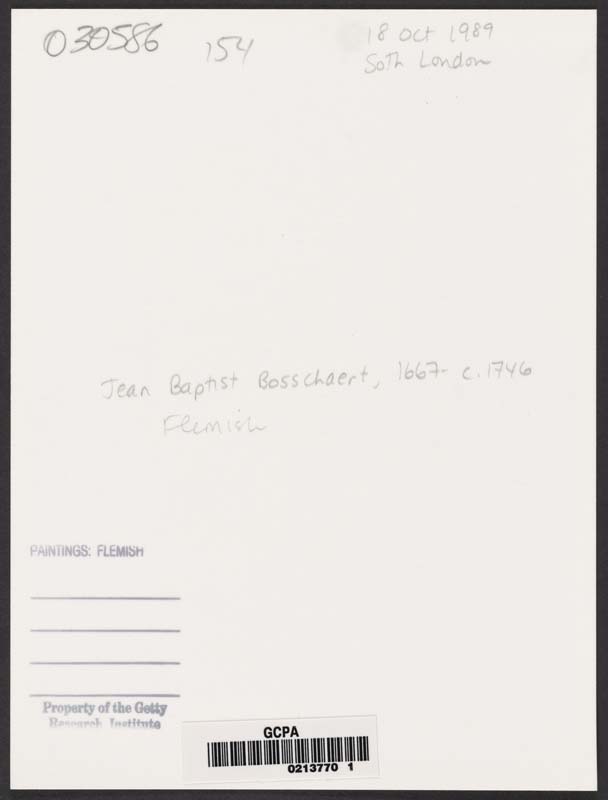 030586
154
18 Oct 1989
Soth London
Jean Baptist Bosschaert, 1667- c.1746
Flemish
PAINTINGS: FLEMISH
Property of the Getty
Research Institute
GCPA
0213770 1